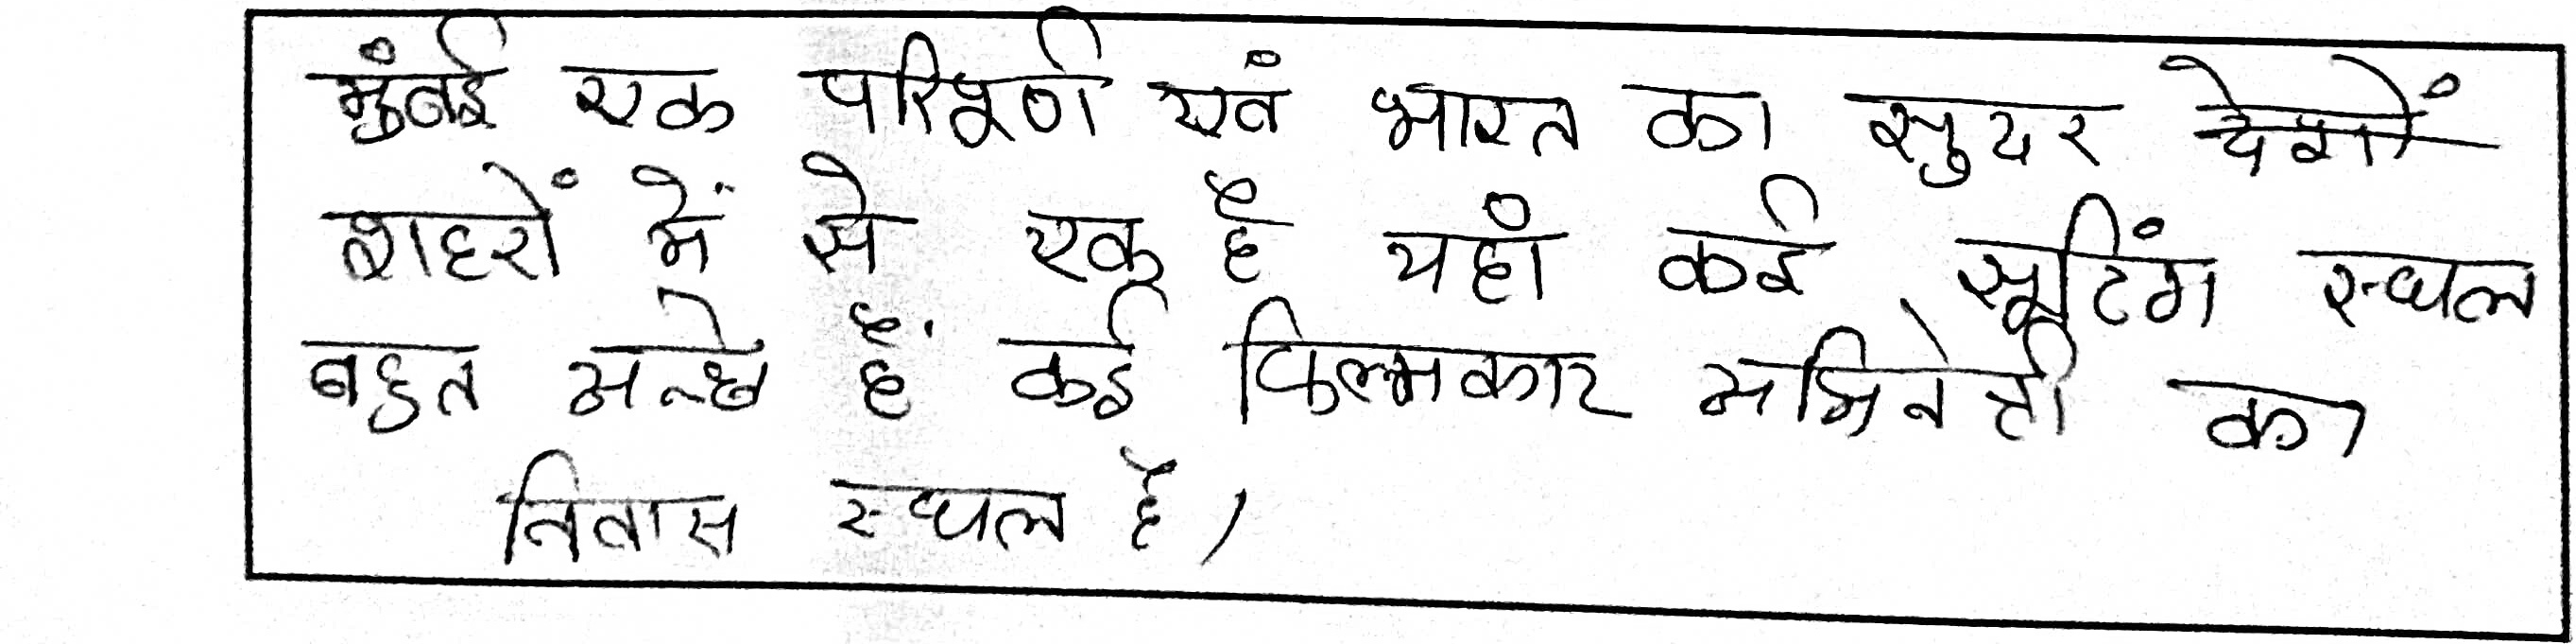 मुंबई एक परिपूर्ण एवं भारत का सुदर देशों
शहरों में से एक है यहां कई सूटिंग स्थल
बहुत अच्छे हैं कई फिल्मकार अभिनेता का
निवास स्थल है।